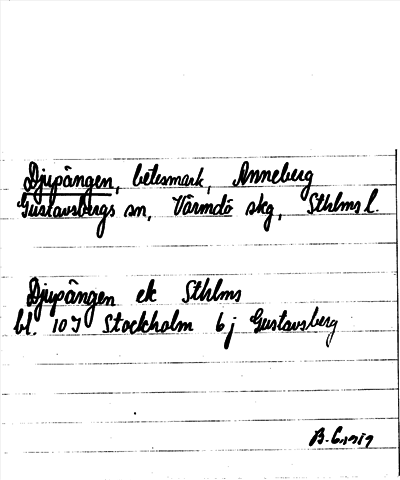 Djupängen, betesmark, Anneberg
Gustavsbergs sn, Värmdö skg, Sthlms l.
Djupängen ek Sthlms
bl. 10I Stockholm 6j Gustavsberg
B.